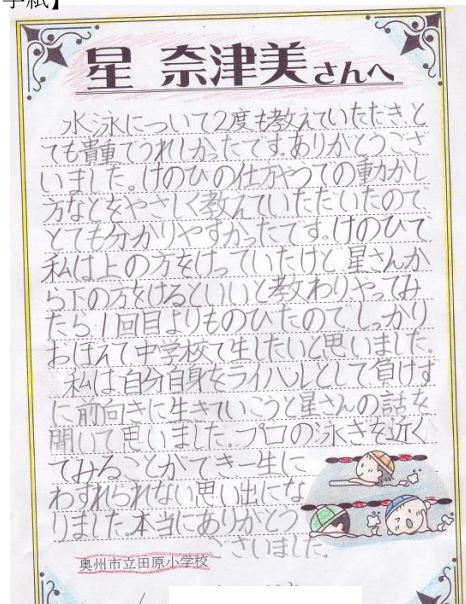 手紙】
星 奈津美さんへ
水泳について2度も教えていただき、と
ても貴重でうれしかったです。ありがとうござ
いました。けのびの仕方やつでの動かし
方などをやさしく教えていただいたので
とても分かりやすかったです。けのびで
私は上の方をけっていたけど、星さんか
ら下の方をけるといいと教わりやってみ
たら、1回目よりものびたのでしっかり
おぼえて中学校で生したいと思いました。
私は自分自身をライバルとして、負けず
に前向きに生きていこうと星さんの話を
聞いて思いました。プロの泳ぎを近く
でみることができ一生に
わすれられない思い出にな
りました。本当にありがとう
ございました。
奥州市立田原小学校